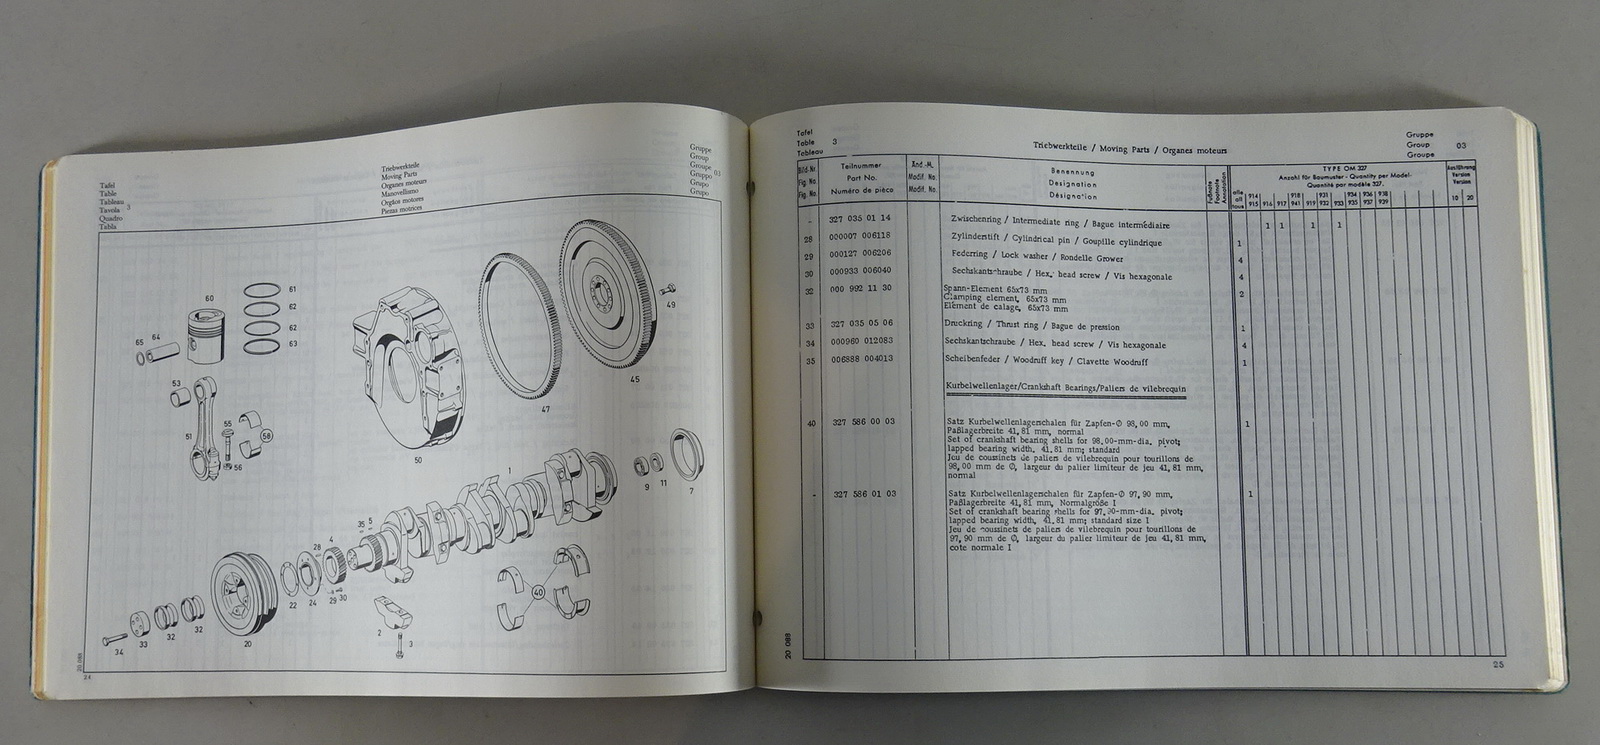 Tafel
Table
Tableau
Tavola 3
Quadro
Tabla
Triebwerkteile
Moving Parts
Organes moteurs
Manovellismo
Órgãos motores
Piezas motrices
Gruppe
Group
Groupe
Gruppo 03
Grupo
Grupo
60
61
62
62
63
65 64
53
51
55
58
56
50
47
45
49
1
9 11 7
35 5
4
28
22 24 29 30
2
3
40
34 33 32 32 20
20 088
24
Tafel
Table 3
Tableau
Triebwerkteile / Moving Parts / Organes moteurs
Gruppe
Group 03
Groupe
Bild-Nr.
Fig. No.
Fig. No.
Teilnummer
Part No.
Numéro de pièce
Änd.-M.
Modif. No.
Modif. No.
Benennung
Designation
Désignation
Fußnote
Footnote
Annotation
TYPE OM 327
Anzahl für Baumuster - Quantity per Model-
Quantité par modèle 327.
alle
all
tous
914 918 931 934 936 938
915 916 917 941 919 932 933 935 937 939
Ausführung
Version
Version
10 20
- 327 035 01 14 Zwischenring / Intermediate ring / Bague intermédiaire 1 1 1 1
28 000007 006118 Zylinderstift / Cylindrical pin / Goupille cylindrique 1
29 000127 006206 Federring / Lock washer / Rondelle Grower 4
30 000933 006040 Sechskantschraube / Hex. head screw / Vis hexagonale 4
32 000 992 11 30 Spann-Element 65x73 mm 2
Clamping element, 65x73 mm
Elément de calage, 65x73 mm
33 327 035 05 06 Druckring / Thrust ring / Bague de pression 1
34 000960 012083 Sechskantschraube / Hex. head screw / Vis hexagonale 4
35 006888 004013 Scheibenfeder / Woodruff key / Clavette Woodruff 1
Kurbelwellenlager/Crankshaft Bearings/Paliers de vilebrequin
40 327 586 00 03 Satz Kurbelwellenlagerschalen für Zapfen-Ø 98,00 mm, 1
Paßlagerbreite 41,81 mm, normal
Set of crankshaft bearing shells for 98.00-mm-dia. pivot;
lapped bearing width, 41.81 mm; standard
Jeu de coussinets de paliers de vilebrequin pour tourillons de
98,00 mm de Ø, largeur du palier limiteur de jeu 41,81 mm,
normal
- 327 586 01 03 Satz Kurbelwellenlagerschalen für Zapfen-Ø 97,90 mm, 1
Paßlagerbreite 41,81 mm, Normalgröße I
Set of crankshaft bearing shells for 97.90-mm-dia. pivot;
lapped bearing width, 41.81 mm; standard size I
Jeu de coussinets de paliers de vilebrequin pour tourillons de
97,90 mm de Ø, largeur du palier limiteur de jeu 41,81 mm,
cote normale I
20 088
25